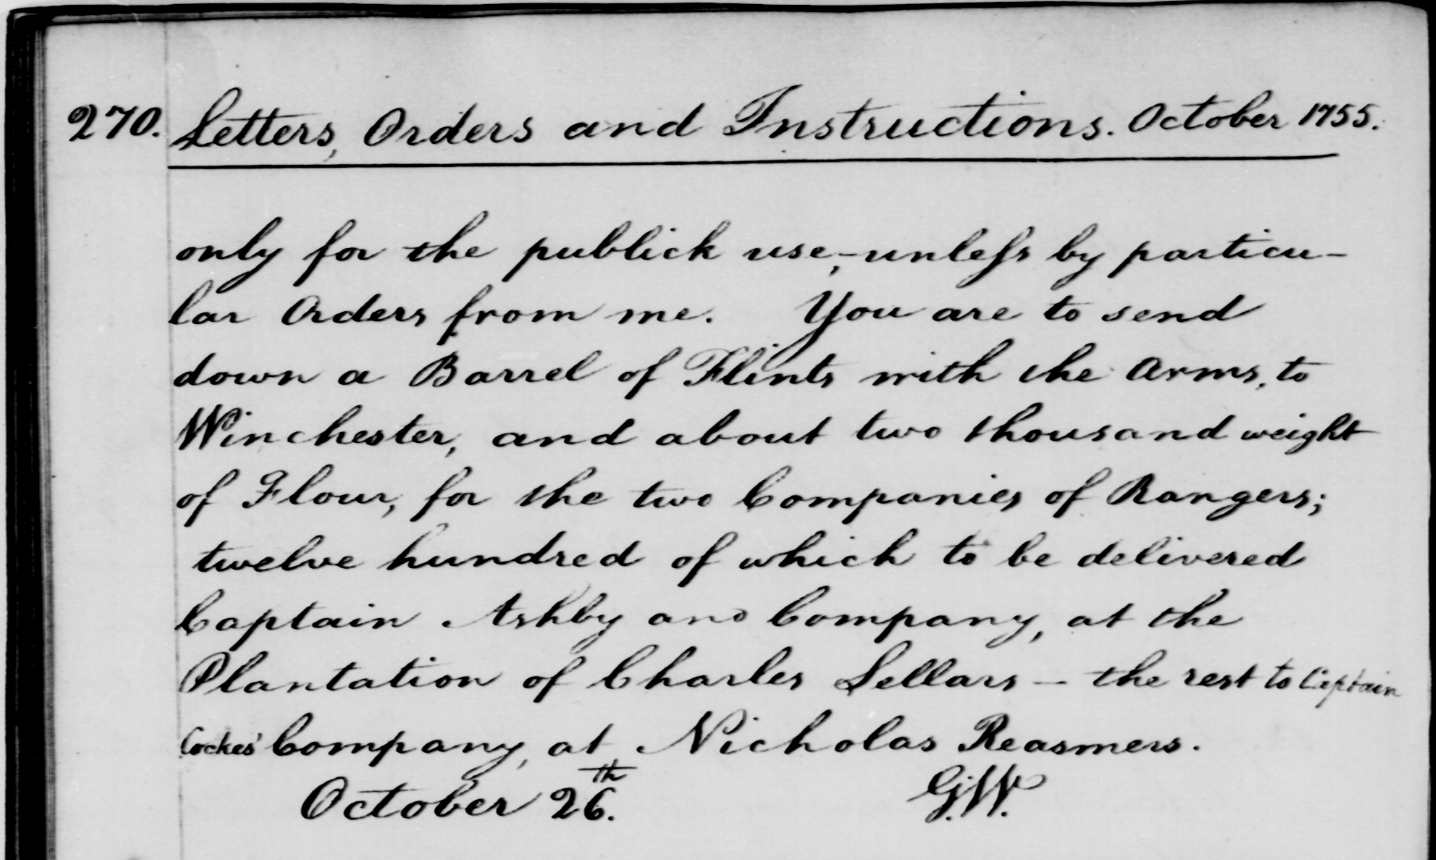 270. Letters, Orders and Instructions. October 1755.
only for the publick use,-unless by particu-
lar Orders from me. You are to send
down a Barrel of Flints with the Arms, to
Winchester, and about two thousand weight
of Flour, for the two Companies of Rangers;
twelve hundred of which to be delivered
Captain Ashby and Company, at the
Plantation of Charles Sellars - the rest to Captain
Cockes' Company, at Nicholas Reasmers.
October 26.th G.W.